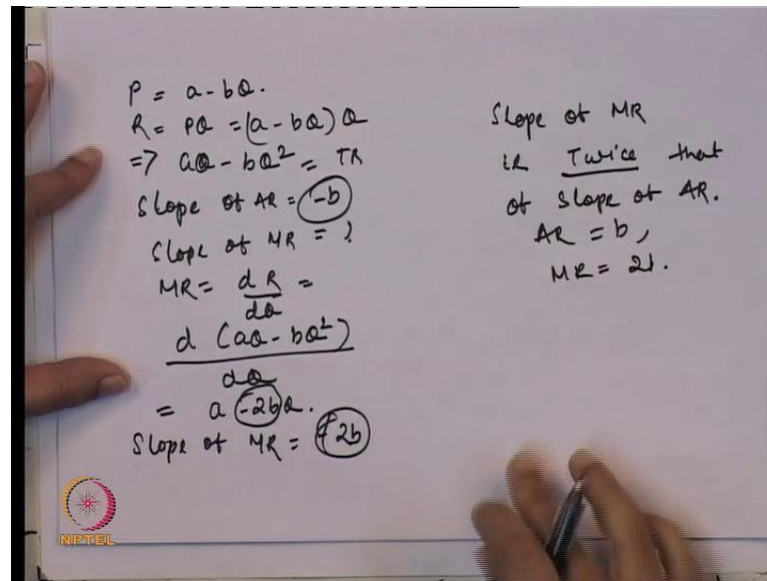 P = a - bQ.
R = PQ = (a - bQ) Q
=> aQ - bQ² = TR
Slope of AR = -b
Slope of MR = ?
MR = dR/dQ =
d (aQ - bQ²)
dQ
= a - 2bQ.
Slope of MR = 2b
Slope of MR
is Twice that
of slope of AR.
AR = b,
MR = 2b.
NPTEL